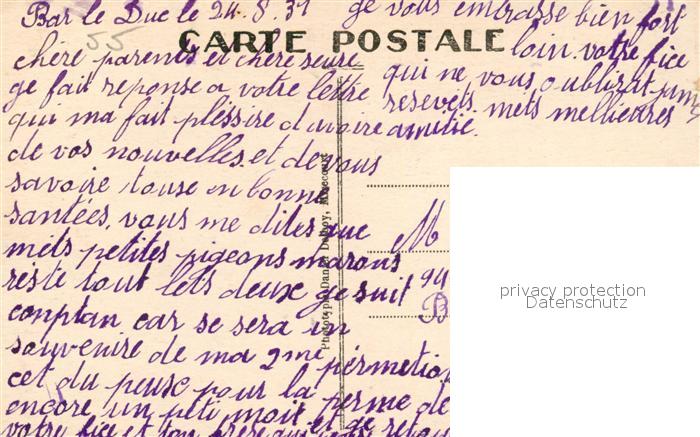 Bar le Duc le 24. 8. 31
55
CARTE POSTALE
chère parents et chère seure
ge fait reponse a votre lettre
qui ma fait pléssire d'avoire
de vos nouvelles. et de vous
savoire touse en bonne
santées. vous me dites que
mets petites pigeons marons
reste tout lets deux ge suit
conptan car se sera un
souvenire de ma 2me pérmetion
cet du peux pour la perme de
encore un peti mois et ge
votre fice et ton frère qui
ge vous embrasse bien fort
loin. votre fice
qui ne vous oublirat jamais
resevets. mets mellieures
amitié.
M
94
B
Phototypie Daniel Delboy, Mirecourt
privacy protection
Datenschutz